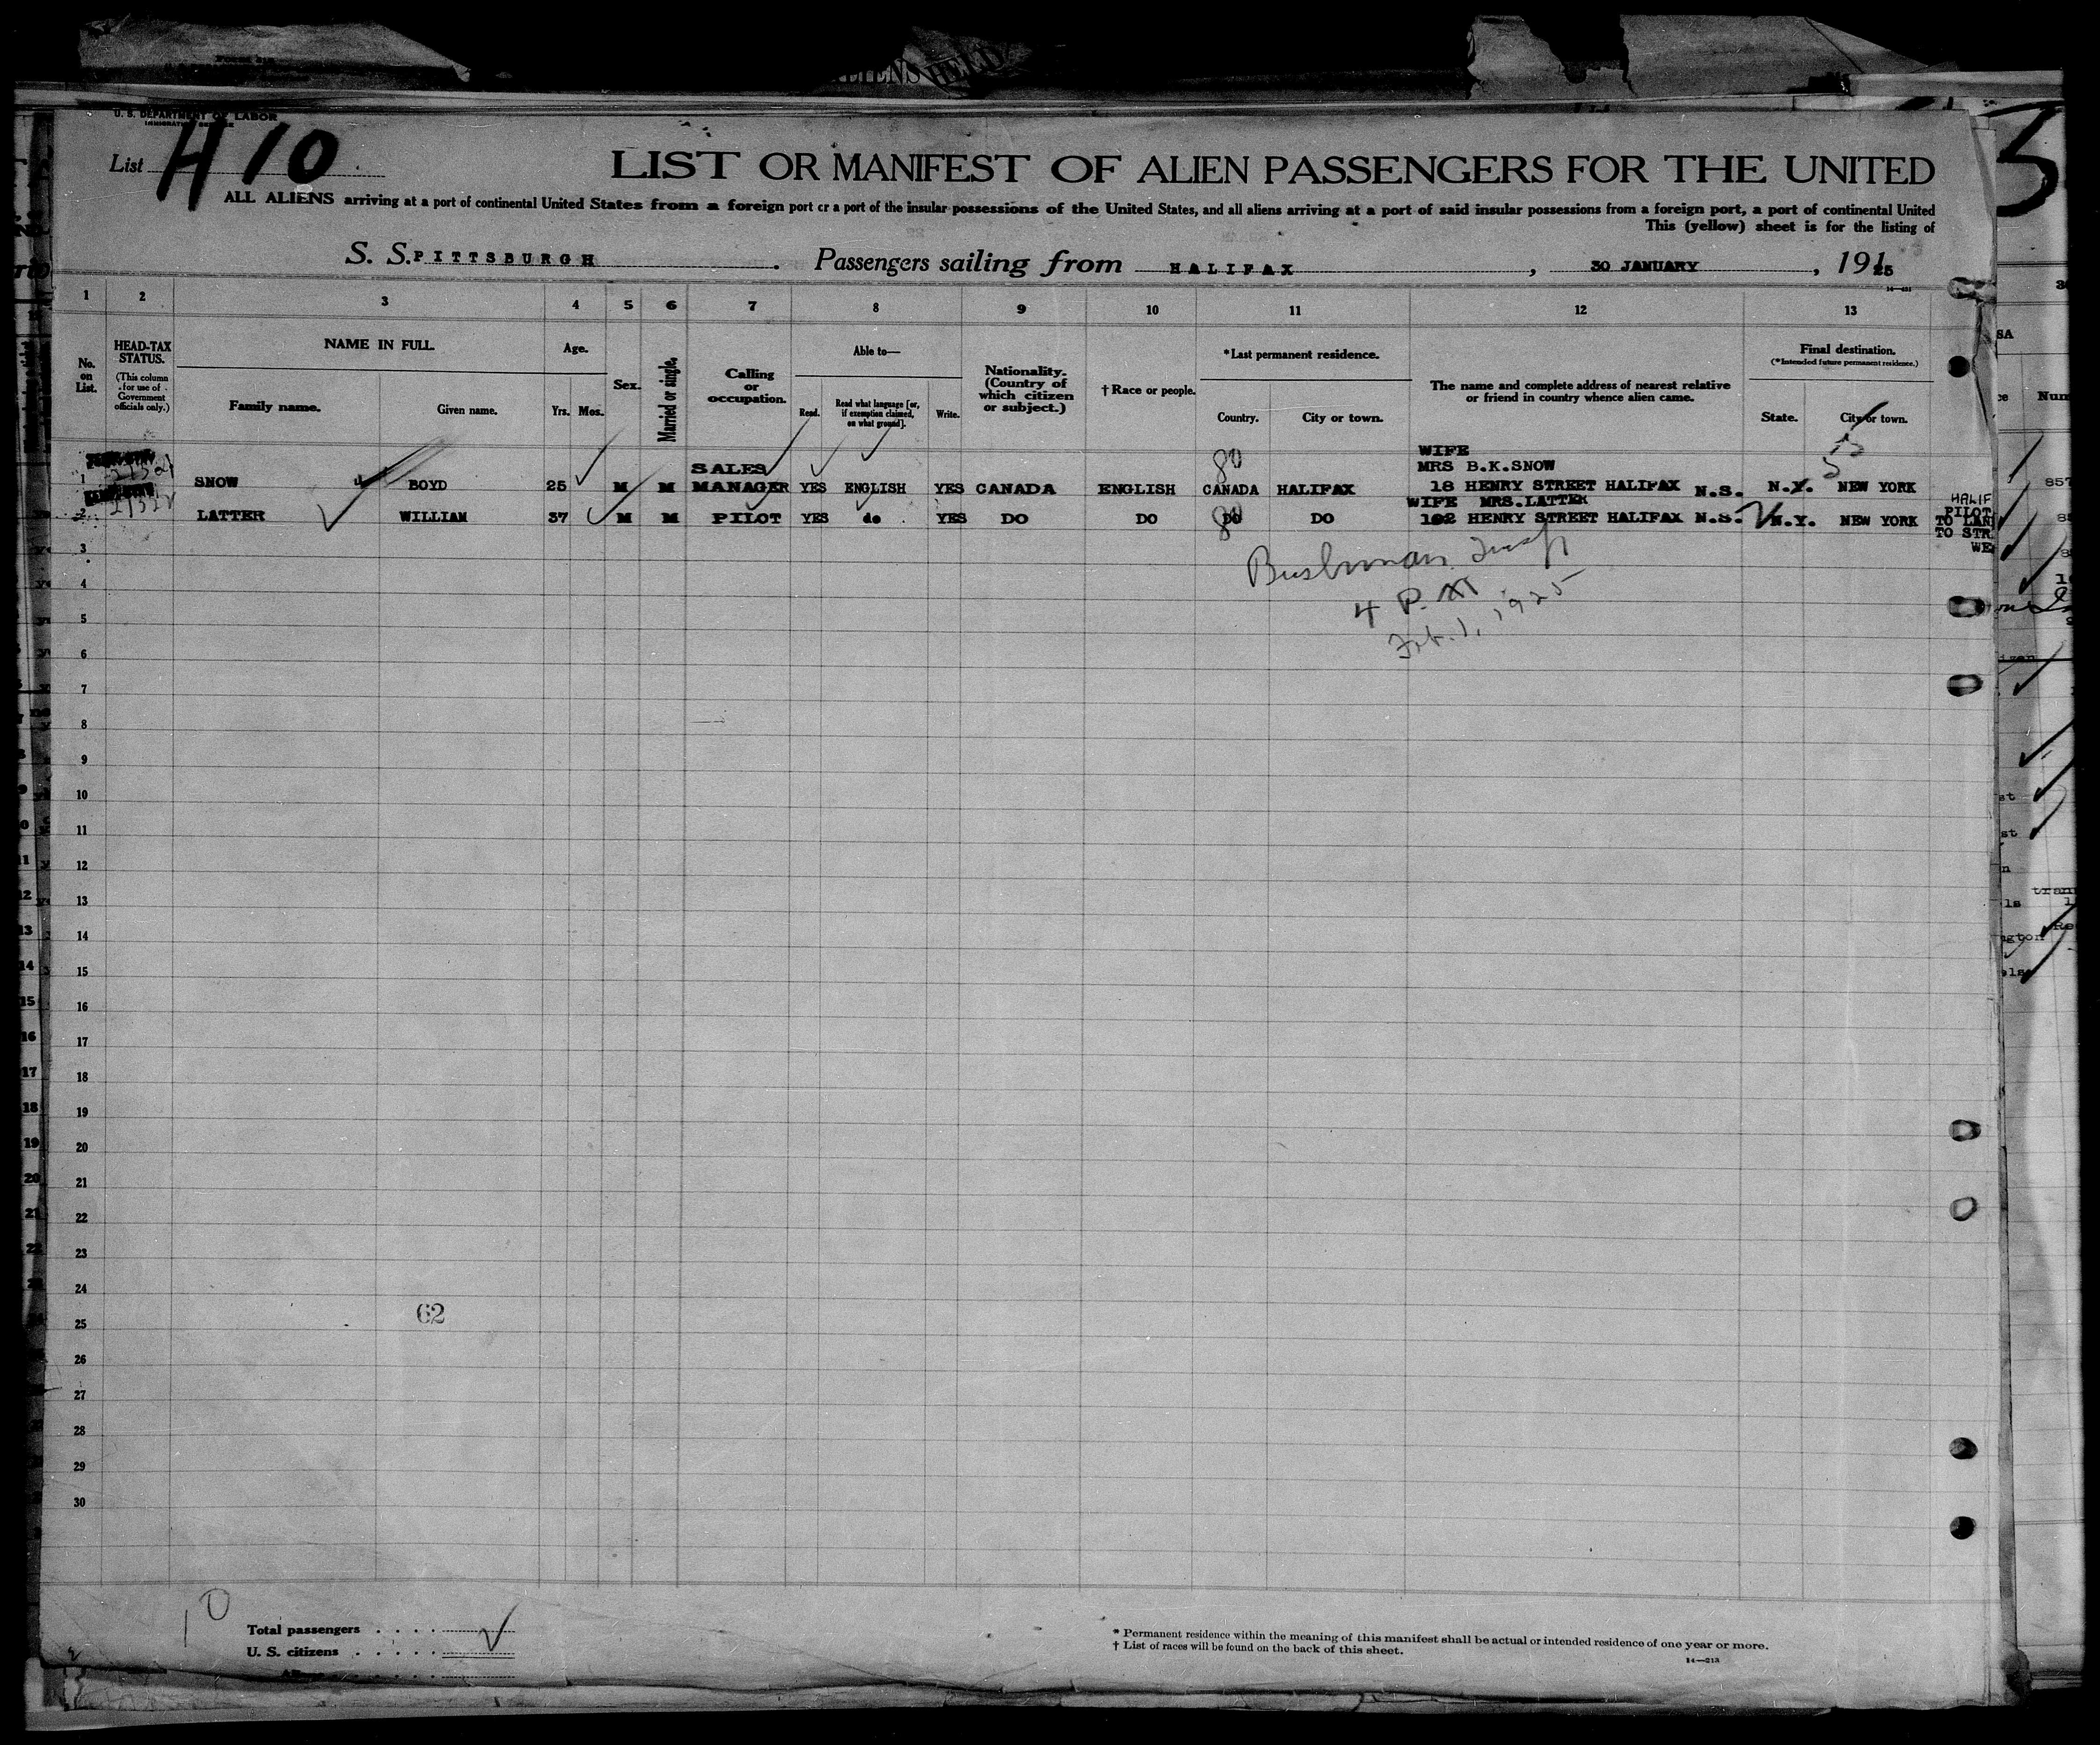 ALIENS HELD
U. S. DEPARTMENT OF LABOR
IMMIGRATION SERVICE
List H 10
LIST OR MANIFEST OF ALIEN PASSENGERS FOR THE UNITED
ALL ALIENS arriving at a port of continental United States from a foreign port or a port of the insular possessions of the United States, and all aliens arriving at a port of said insular possessions from a foreign port, a port of continental United
This (yellow) sheet is for the listing of
S. S. PITTSBURGH. Passengers sailing from HALIFAX, 30 JANUARY, 19125
1 2 3 4 5 6 7 8 9 10 11 12 13
No. on List.
HEAD-TAX STATUS.
(This column for use of Government officials only.)
NAME IN FULL.
Family name. Given name.
Age.
Yrs. Mos.
Sex.
Married or single.
Calling or occupation.
Able to—
Read. Read what language [or, if exemption claimed, on what ground]. Write.
Nationality. (Country of which citizen or subject.)
† Race or people.
*Last permanent residence.
Country. City or town.
The name and complete address of nearest relative or friend in country whence alien came.
Final destination.
(*Intended future permanent residence.)
State. City or town.
80
WIFE
SALES MRS B.K.SNOW
1 SNOW BOYD 25 M M MANAGER YES ENGLISH YES CANADA ENGLISH CANADA HALIFAX 18 HENRY STREET HALIFAX N.S. N.Y. NEW YORK
WIFE MRS.LATTER
2 LATTER WILLIAM 37 M M PILOT YES do YES DO DO DO DO 102 HENRY STREET HALIFAX N.S. N.Y. NEW YORK
HALIF
PILOT
TO LAN
TO STR
WE
3
4
5
6
7
8
9
10
11
12
13
14
15
16
17
18
19
20
21
22
23
24
25
26
27
28
29
30
Bushman Insp
Feb. 1, 1925
62
10
Total passengers
U. S. citizens
* Permanent residence within the meaning of this manifest shall be actual or intended residence of one year or more.
† List of races will be found on the back of this sheet.
14—213